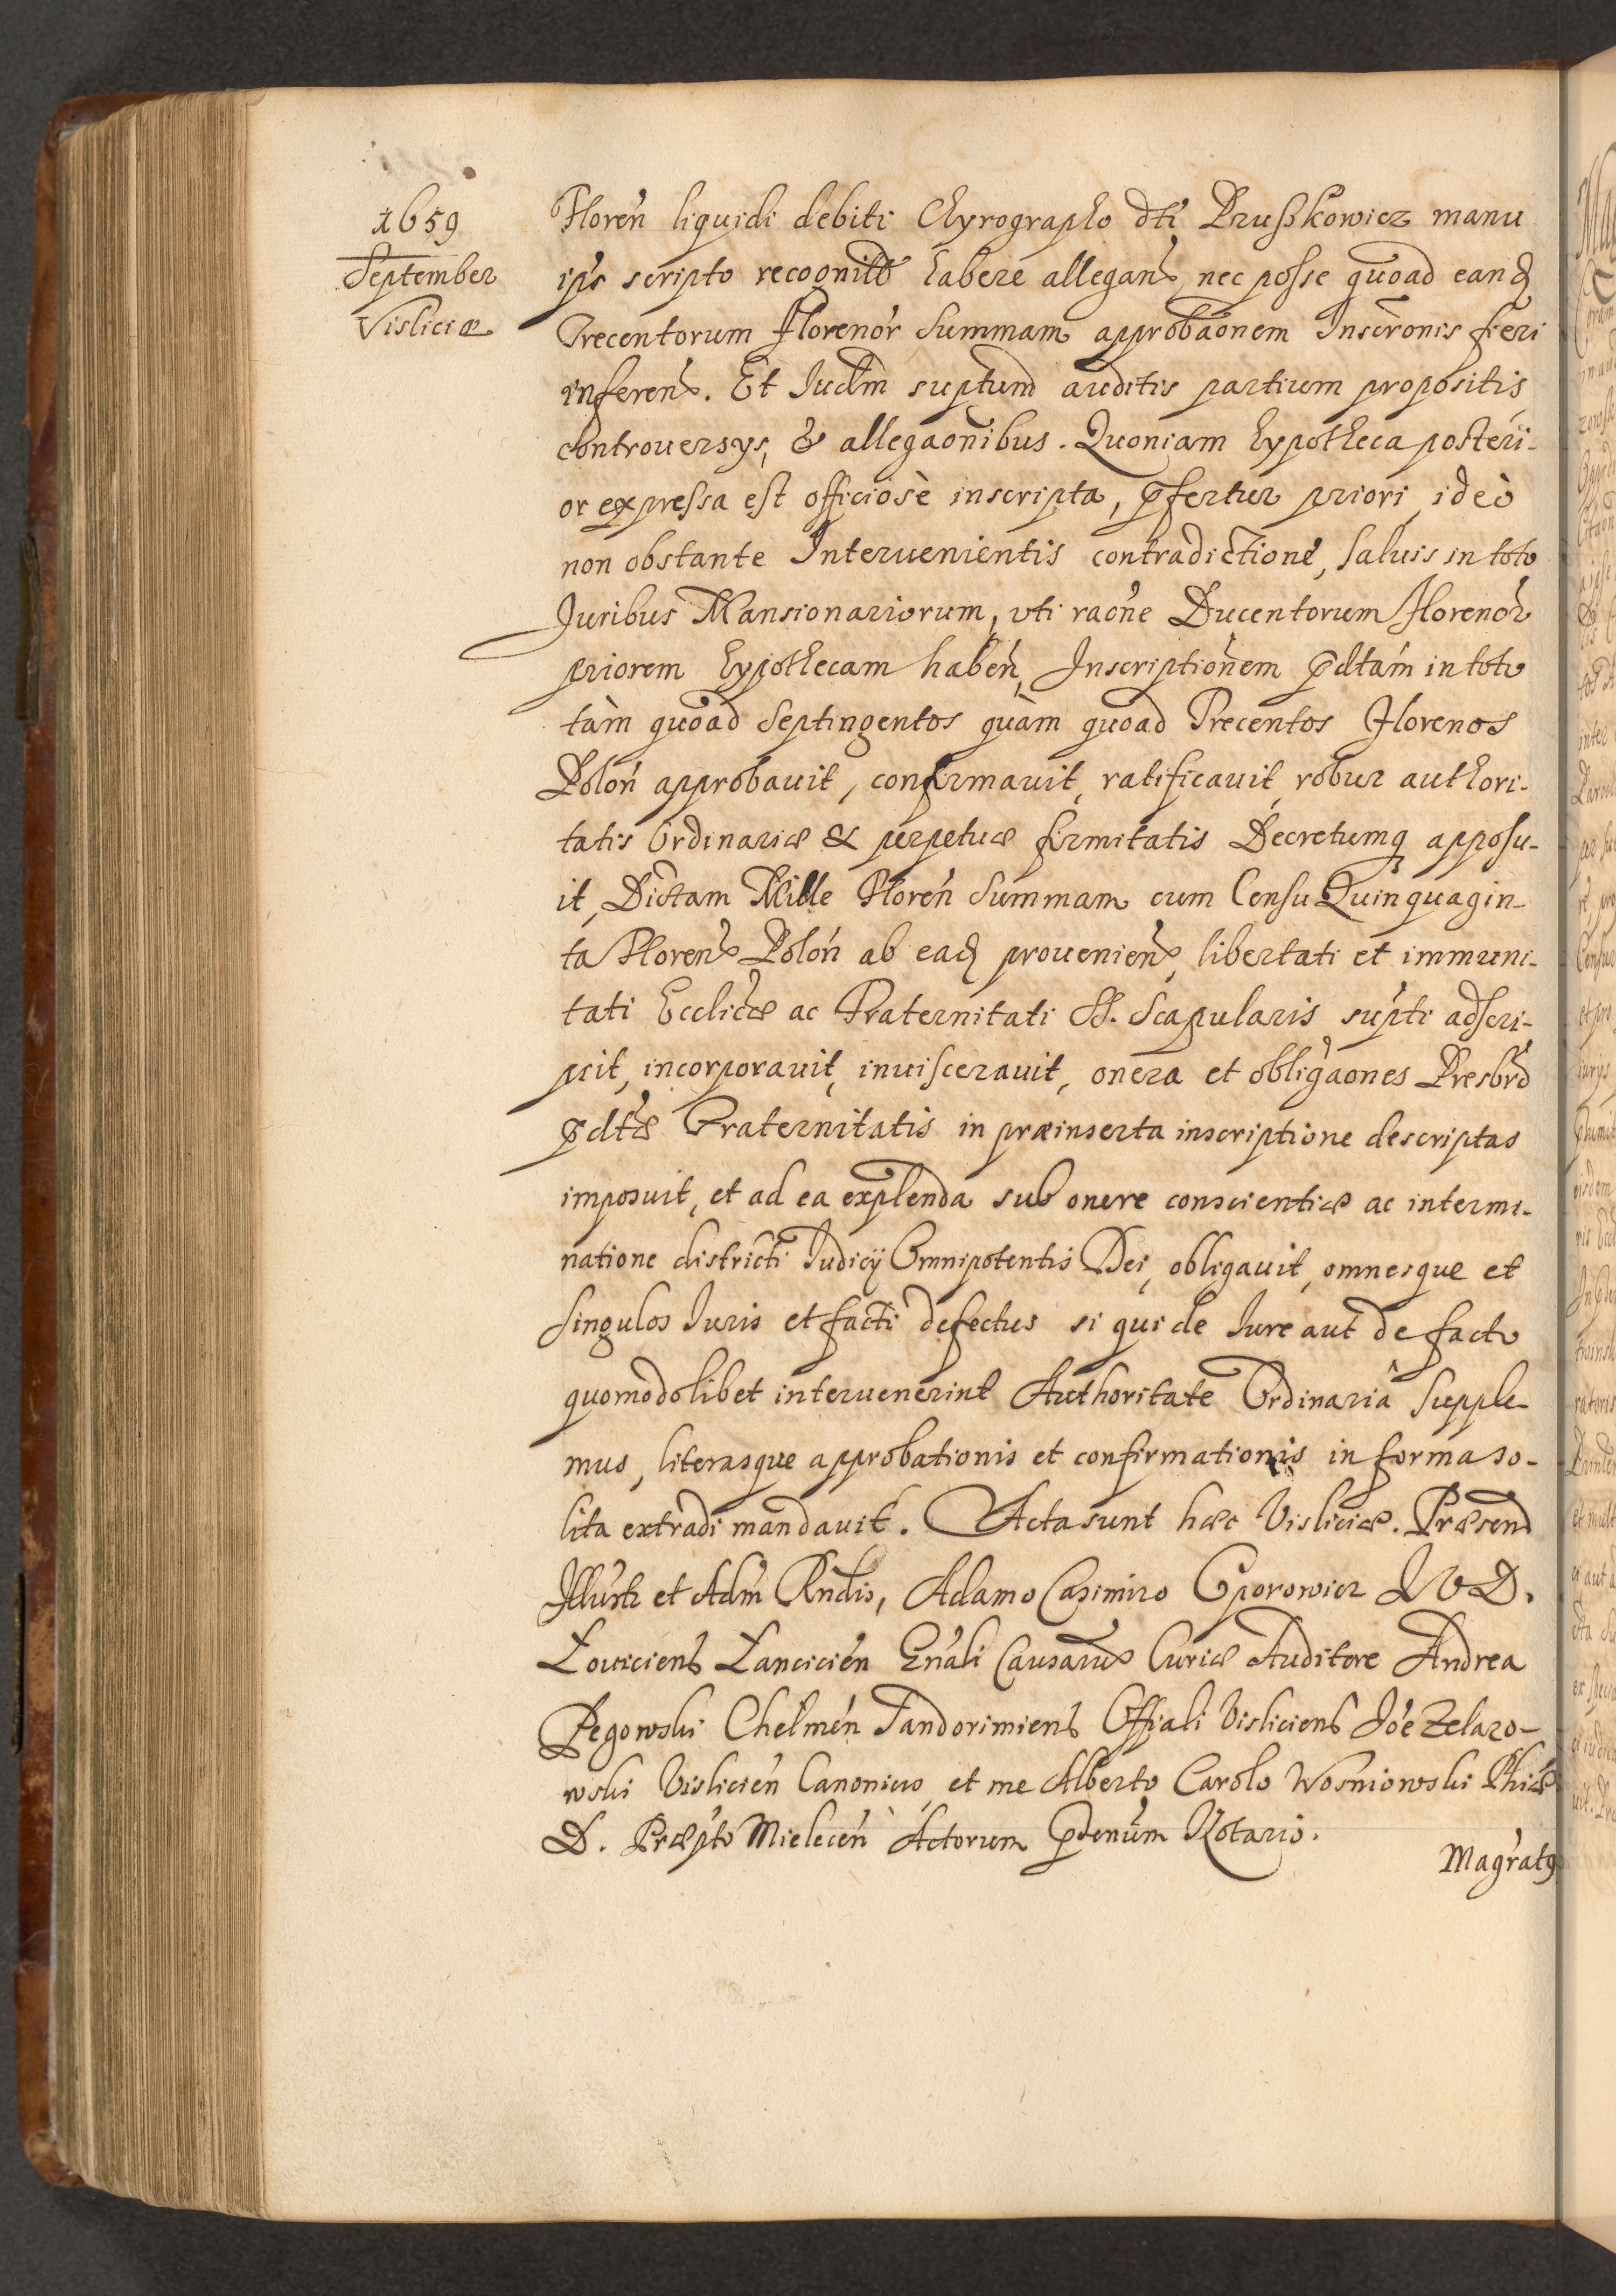 1659
September
Visliciæ
Floreń liquidi debiti Chyrographo dti Pruszkowicz manu
ipś scripto recognito habere allegans nec posse quoad eand
Trecentorum Florenor Summam approbaonem Inscronis fieri
inferens. Et Judm suptund auditis partium propositis
controuersys, & allegaonibus. Quoniam hypotheca posteri-
or expressa est officiosè inscripta, pfertur priori, ideò
non obstante Interuenientis contradictione, saluis in toto
Juribus Mansionariorum, vti raone Ducentorum Florenor
priorem hypothecam habeń, Inscriptionem pdtam in toto
tàm quoad Septingentos quàm quoad Trecentos Florenos
Poloń approbauit, confirmauit, ratificauit, robur authori-
tatis Ordinariæ & perpetuæ firmitatis Decretumq apposu-
it, Dictam Mille Floreń Summam cum Censu Quinquagin-
ta Florens Poloń ab ead proueniens, libertati et immuni-
tati Ecclicæ ac Fraternitati SS. Scapularis supti adscri-
psit, incorporauit, inuiscerauit, onera et obligaones Presbrd
pdtæ Fraternitatis in præinserta inscriptione descriptas
imposuit, et ad ea explenda sub onere conscientiæ ac intermi-
natione districti Judicij Omnipotentis Dei, obligauit, omnesque et
Singulos Juris et facti defectus si qui de Jure aut de facto
quomodolibet interuenerint Authoritate Ordinariâ supple-
mus, literasque approbationis et confirmationis in forma so-
lita extradi mandauit. Acta sunt hæc Visliciæ. Præsend
Illustr et Adm Rndis, Adamo Casimiro Oporowicz J V D.
Louiciens Lancicień Gnali Causarum Curiæ Auditore Andrea
Pegowski Chelmeń Sandorimiens Offiali Visliciens Joe Zelazo-
wski Vislicień Canonicis, et me Alberto Carolo Wosniowski Phiæ
D. Præpto Mieleceń Actorum pntium Notario.
Magratq